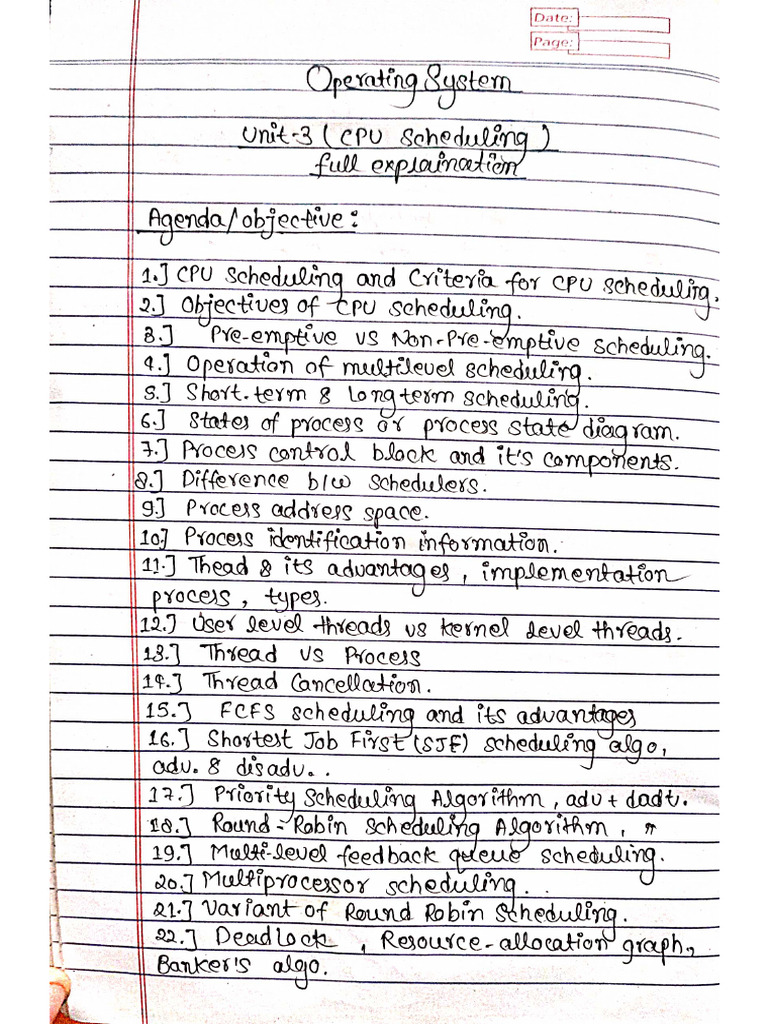 Date:
Page:
Operating System
Unit-3 ( CPU Scheduling )
full explaination
Agenda/objective:
1.] CPU Scheduling and Criteria for CPU Scheduling.
2.] Objectives of CPU scheduling.
3.] Pre-emptive vs Non-Pre-emptive scheduling.
4.] Operation of multilevel scheduling.
5.] Short-term & long term scheduling.
6.] States of process or process state diagram.
7.] Process control block and it's components.
8.] Difference b/w schedulers.
9.] Process address space.
10.] Process identification information.
11.] Thead & its advantages, implementation
process, types.
12.] User level threads vs kernel level threads.
13.] Thread vs Process
14.] Thread Cancellation.
15.] FCFS scheduling and its advantages
16.] Shortest Job First (SJF) scheduling algo,
adv. & disadv..
17.] Priority Scheduling Algorithm, adv + dadt.
18.] Round-Robin Scheduling Algorithm, "
19.] Multi-level feedback queue scheduling.
20.] Multiprocessor scheduling..
21.] Variant of Round Robin Scheduling.
22.] Deadlock, Resource-allocation graph,
Banker's algo.